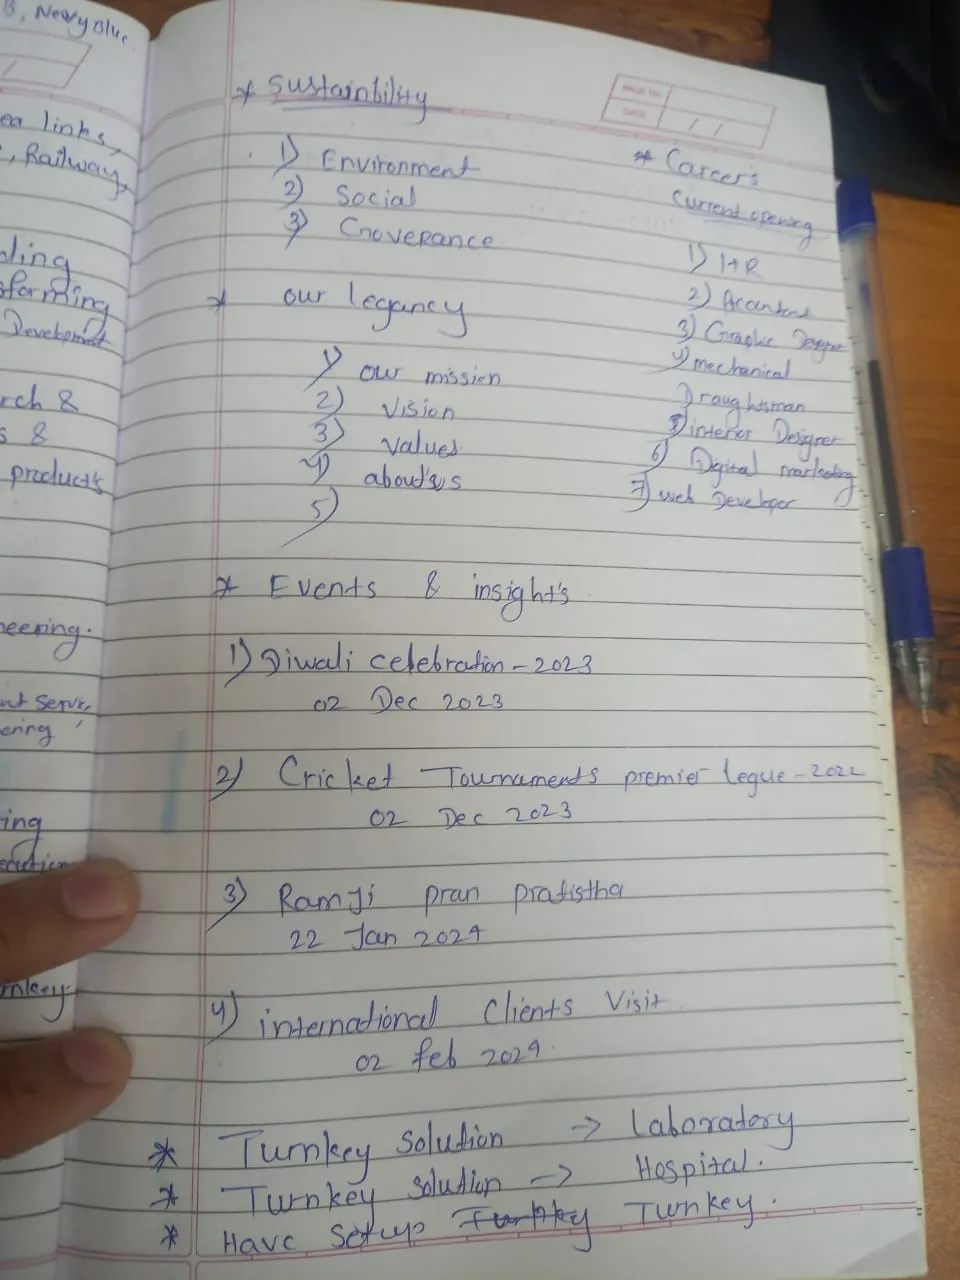 B, NevyBlue.
ea links,
, Railway,
ding
sforming
Development
rch &
s &
product's
neering.
nt Servic,
ering
ing
ecution
rnkey.
* Sustainbility
PAGE NO.
DATE
/ /
1) Environment
2) Social
3) Goverance
* our legancy
1) our mission
2) Vision
3) values
4) about us
5)
* Careers
Current opening
1) HR
2) Acantant
3) Graphic Designer
4) mechanical
Draughtsman
5) interior Designer
6) Digital marketing
7) web Developer
* Events & insight's
1) Diwali celebration - 2023
02 Dec 2023
2) Cricket Tournaments premier legue - 2022
02 Dec 2023
3) Ramji pran pratistha
22 Jan 2024
4) international Clients Visit
02 feb 2024
* Turnkey Solution → Laboratory
* Turnkey solution → Hospital.
* Havc Setup Turnkey.